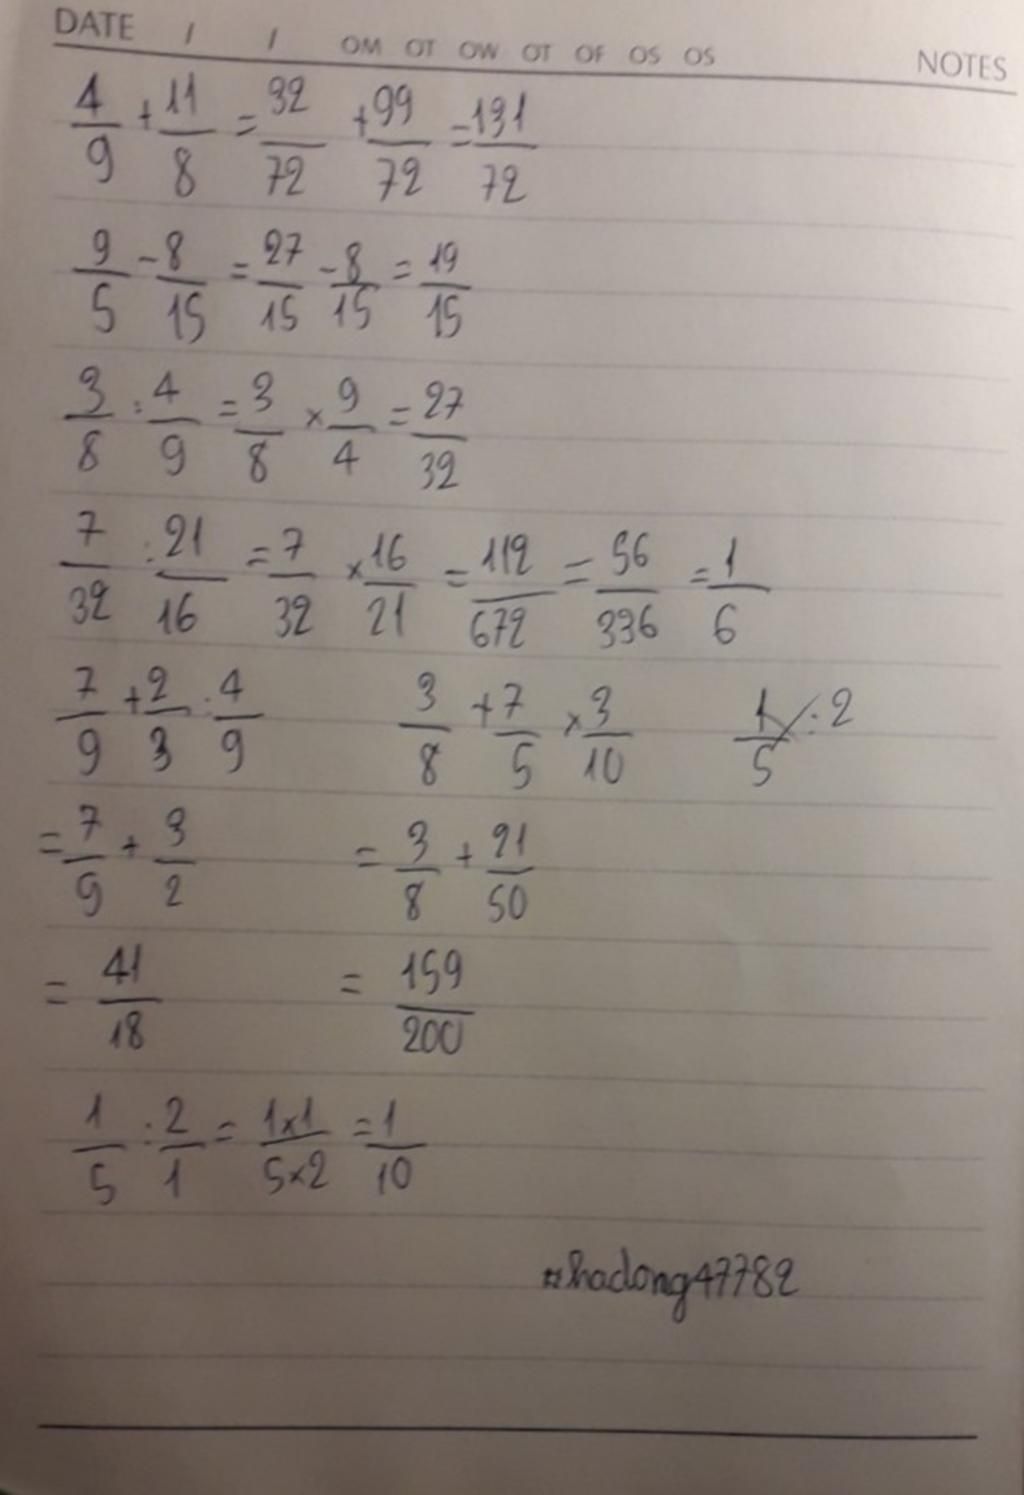 DATE / / OM OT OW OT OF OS OS NOTES
4/9 + 11/8 = 32/72 + 99/72 = 131/72
9/5 - 8/15 = 27/15 - 8/15 = 19/15
3/8 : 4/9 = 3/8 × 9/4 = 27/32
7/32 : 21/16 = 7/32 × 16/21 = 112/672 = 56/336 = 1/6
7/9 + 2/3 : 4/9 3/8 + 7/5 × 3/10 1/5 : 2
= 7/9 + 3/2 = 3/8 + 21/50
= 41/18 = 159/200
1/5 : 2/1 = 1×1/5×2 = 1/10
#hadong47782